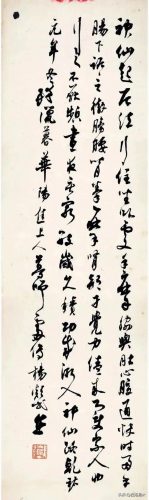 神仙起居法行住坐卧处手摩胁与肚心腹通快时两手
肠下踞踞之彻膀腰背拳摩肾部才觉力倦来即使家人助
行之不厌频昼夜无穷数岁久积功成渐入神仙路乾祐
元年冬残腊暮华阳焦上人尊师处传杨凝式